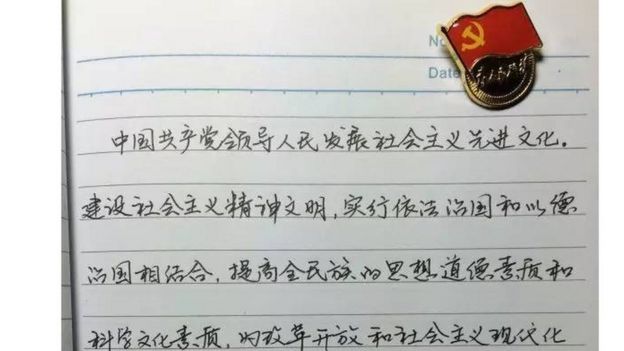 No
Date
为人民服务
中国共产党领导人民发展社会主义先进文化。
建设社会主义精神文明,实行依法治国和以德
治国相结合,提高全民族的思想道德素质和
科学文化素质,为改革开放和社会主义现代化